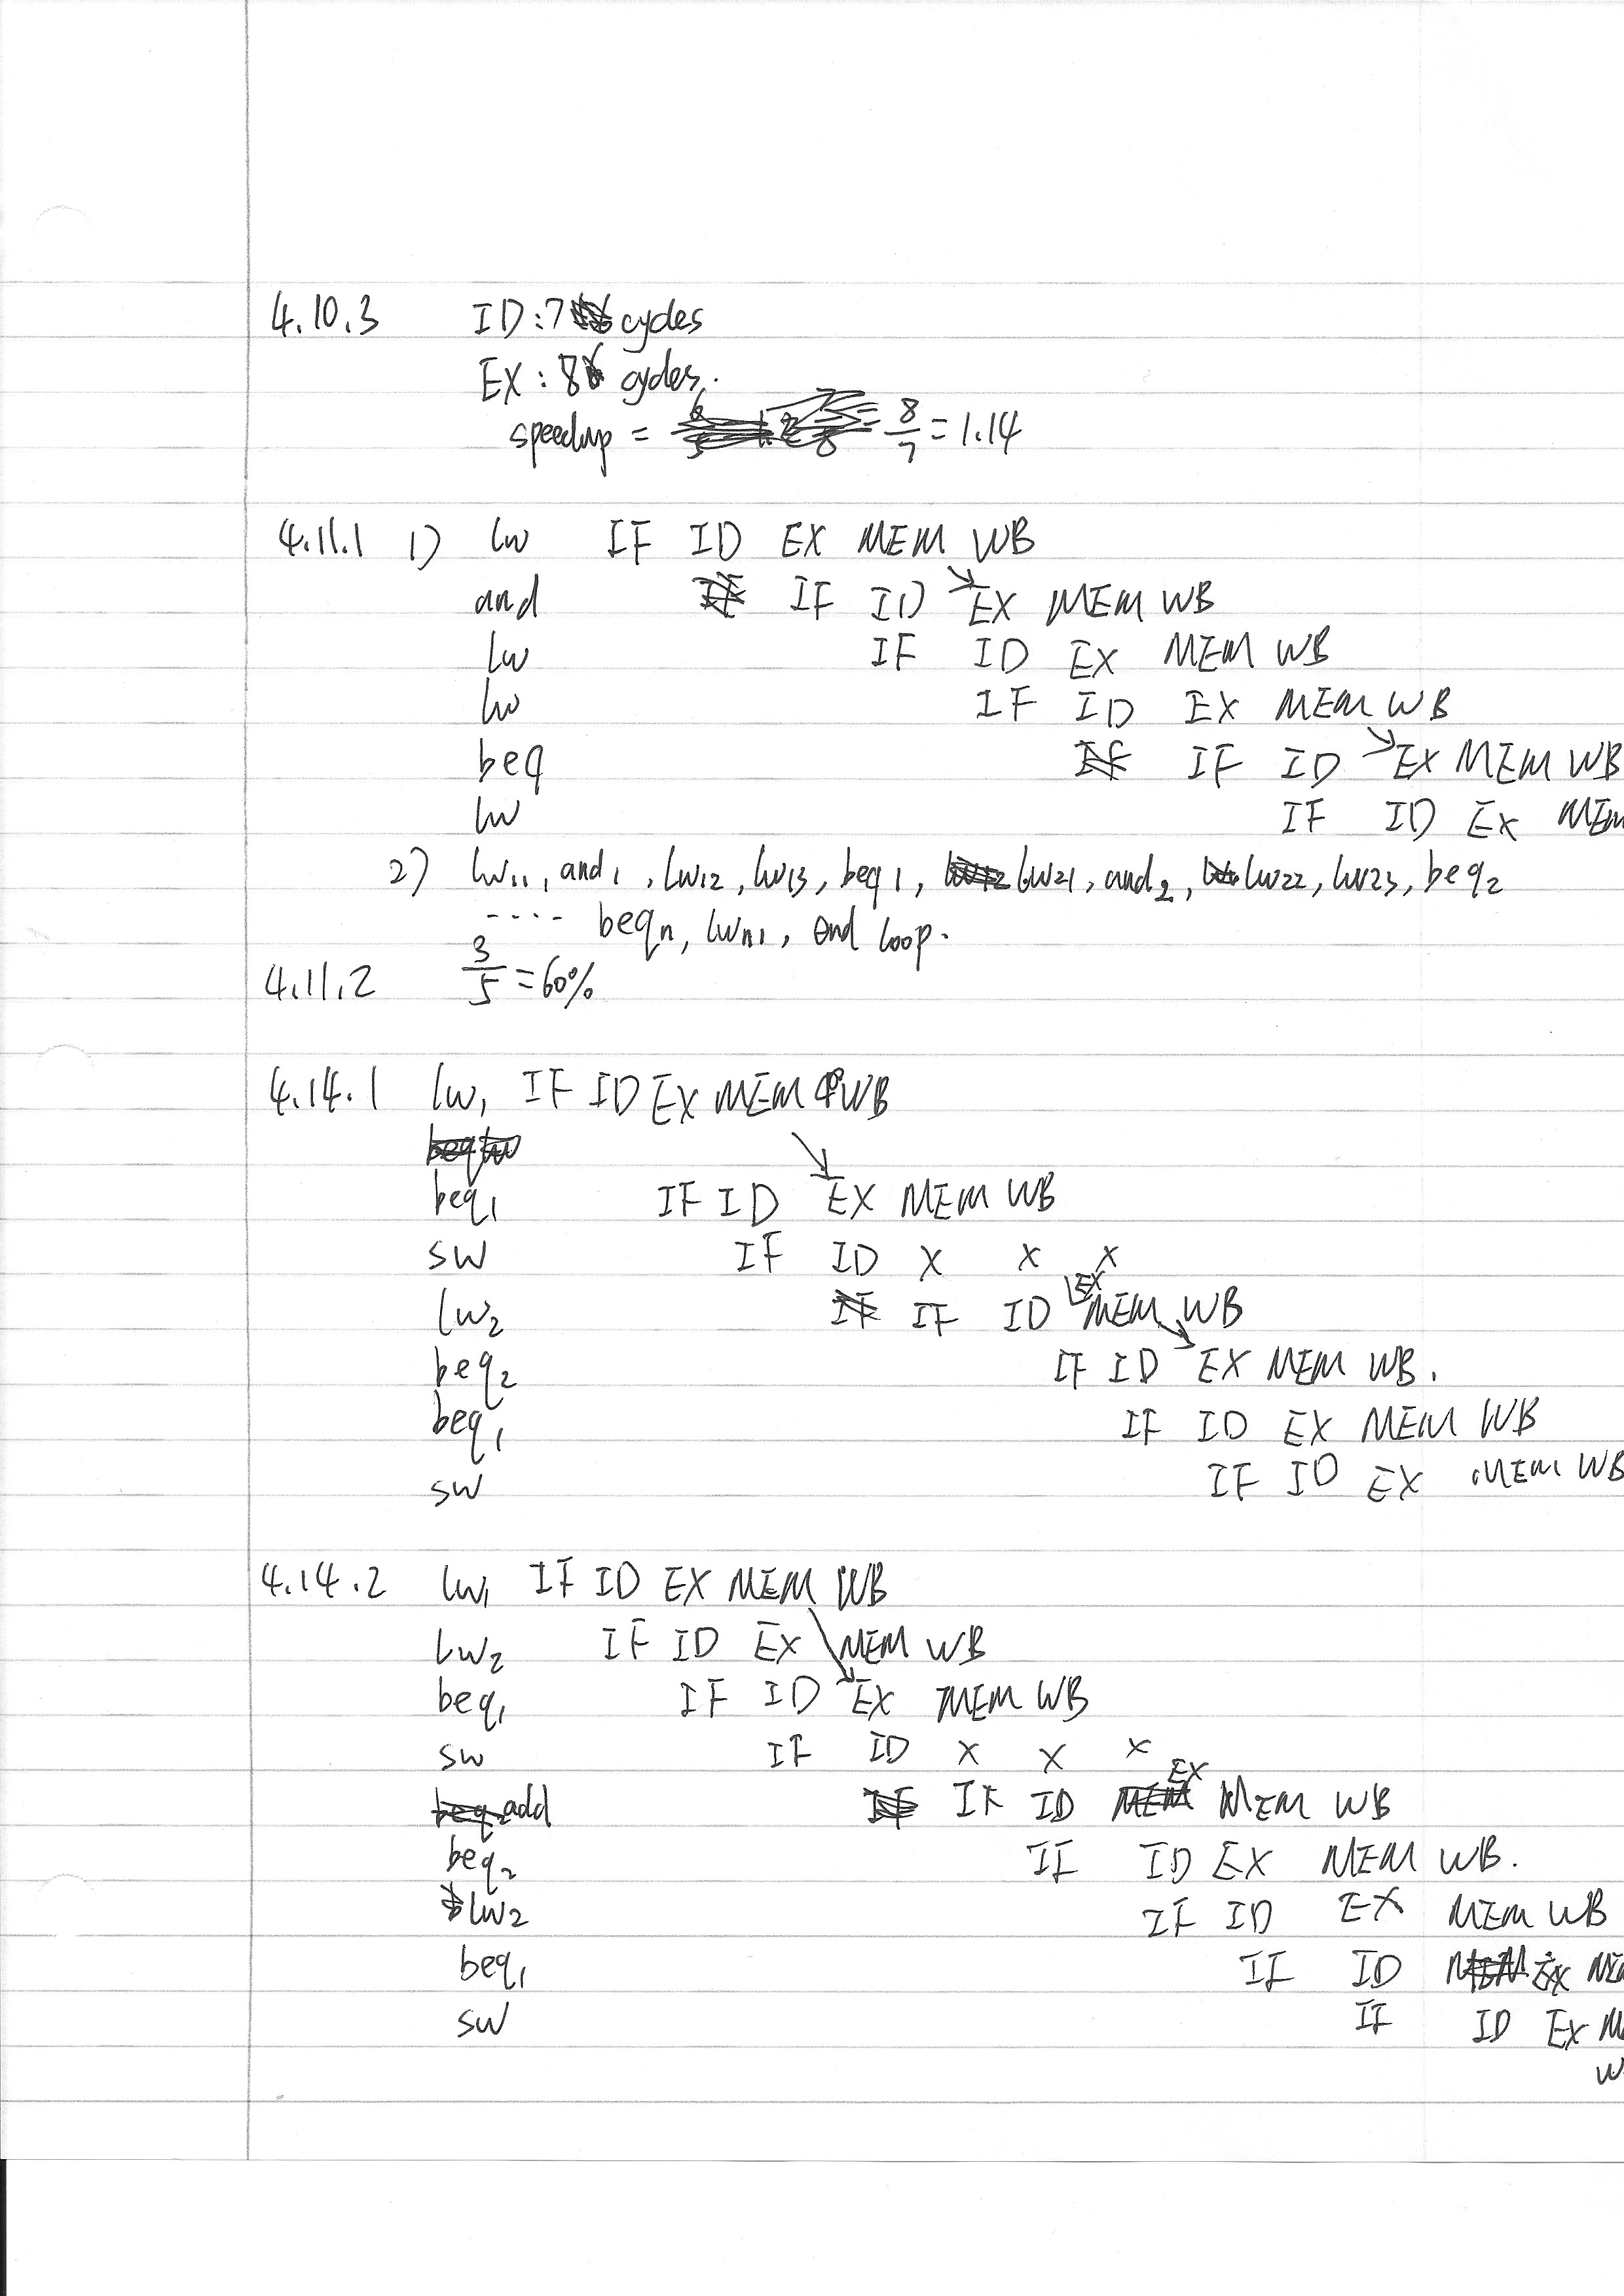 4.10.3 ID: 7 cycles
EX: 8 cycles.
speedup = 8/7 = 1.14
4.11.1 1) lw IF ID EX MEM WB
and IF ID EX MEM WB
lw IF ID EX MEM WB
lw IF ID EX MEM WB
beq IF ID EX MEM WB
lw IF ID EX MEM
2) lw11, and1, lw12, lw13, beq1, lw21, and2, lw22, lw23, beq2
---- beqn, lwn1, end loop.
4.11.2 3/5 = 60%
4.14.1 lw1 IF ID EX MEM WB
beq1 IF ID EX MEM WB
sw IF ID X X X
lw2 IF ID EX MEM WB
beq2 IF ID EX MEM WB.
beq1 IF ID EX MEM WB
sw IF ID EX MEM WB
4.14.2 lw1 IF ID EX MEM WB
lw2 IF ID EX MEM WB
beq1 IF ID EX MEM WB
sw IF ID X X X
add IF ID EX MEM WB
beq2 IF ID EX MEM WB.
lw2 IF ID EX MEM WB
beq1 IF ID EX
sw IF ID EX